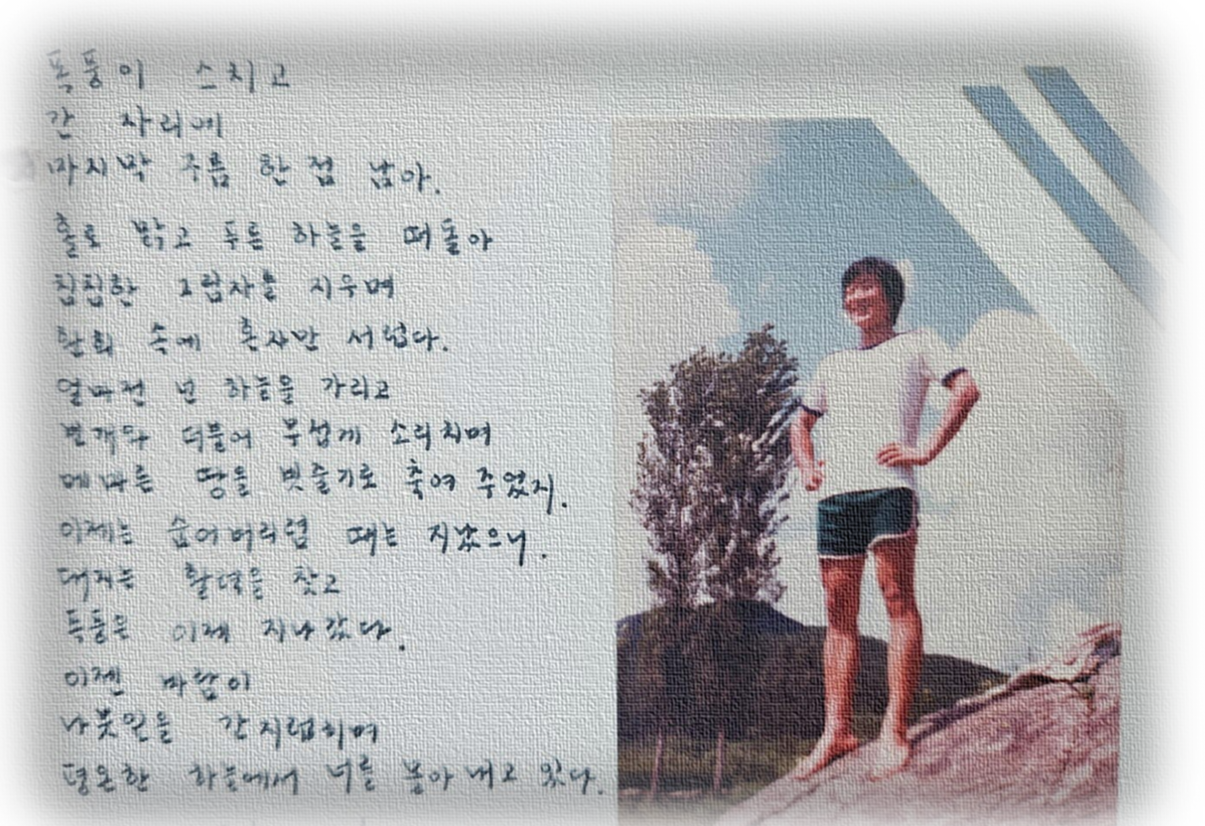 폭풍이 스치고
간 자리에
마지막 구름 한 점 남아.
홀로 맑고 푸른 하늘을 떠돌아
침침한 그림자를 지우며
환희 속에 혼자만 서럽다.
얼마전 넌 하늘을 가리고
번개와 더불어 무섭게 소리치며
메마른 땅을 빗줄기로 축여 주었지.
이제는 숨어버리렴 때는 지났으니.
대지는 활력을 찾고
폭풍은 이제 지나갔다.
이젠 바람이
나뭇잎을 간지럽히며
평온한 하늘에서 너를 몰아 내고 있다.